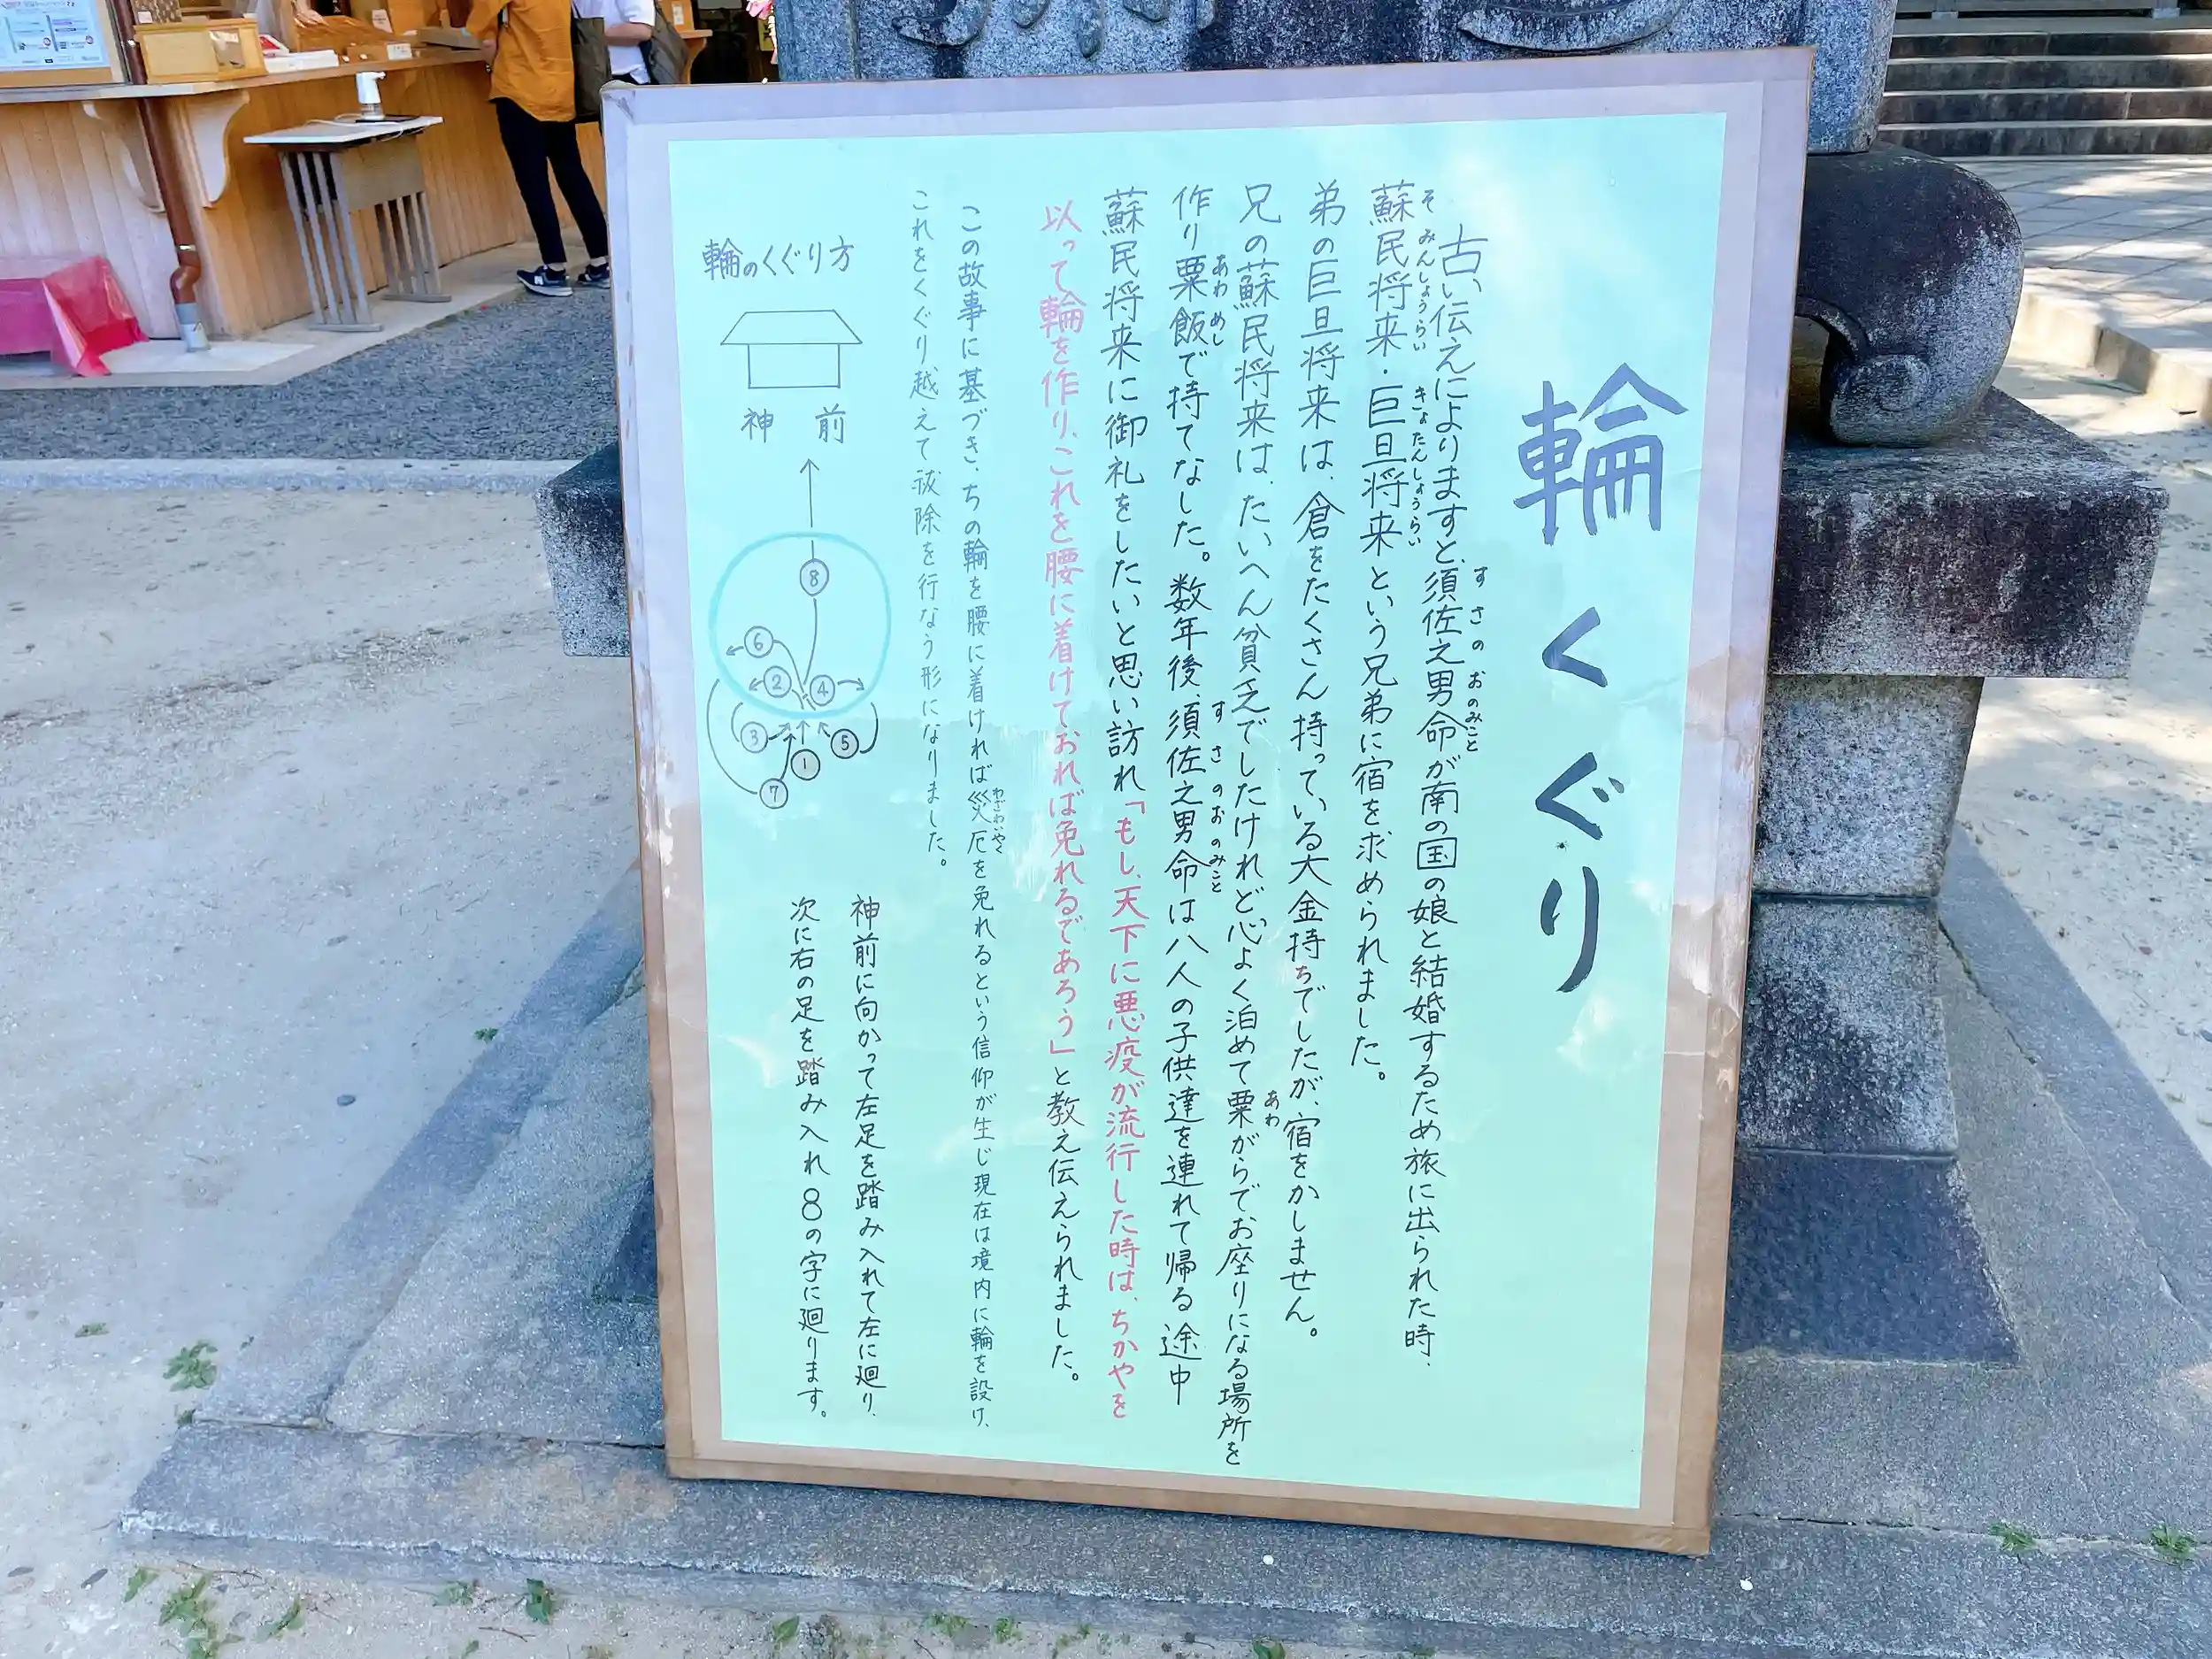 輪くぐり
古い伝えによりますと、須佐之男命が南の国の娘と結婚するため旅に出られた時、
すさのおのみこと
蘇民将来・巨旦将来という兄弟に宿を求められました。
そみんしょうらい きょたんしょうらい
弟の巨旦将来は、倉をたくさん持っている大金持ちでしたが、宿をかしません。
兄の蘇民将来は、たいへん貧乏でしたけれど心よく泊めて粟がらでお座りになる場所を
あわ
作り粟飯で持てなした。数年後、須佐之男命は八人の子供達を連れて帰る途中
あわめし すさのおのみこと
蘇民将来に御礼をしたいと思い訪れ「もし、天下に悪疫が流行した時は、ちかやを
以って輪を作り、これを腰に着けておれば免れるであろう」と教え伝えられました。
この故事に基づき、ちの輪を腰に着ければ災厄を免れるという信仰が生じ現在は境内に輪を設け、
わざわいやく
これをくぐり越えて祓除を行なう形になりました。
輪のくぐり方
神前
⑧
⑥
②
④
③
⑤
①
⑦
神前に向かって左足を踏み入れて左に廻り、
次に右の足を踏み入れ8の字に廻ります。